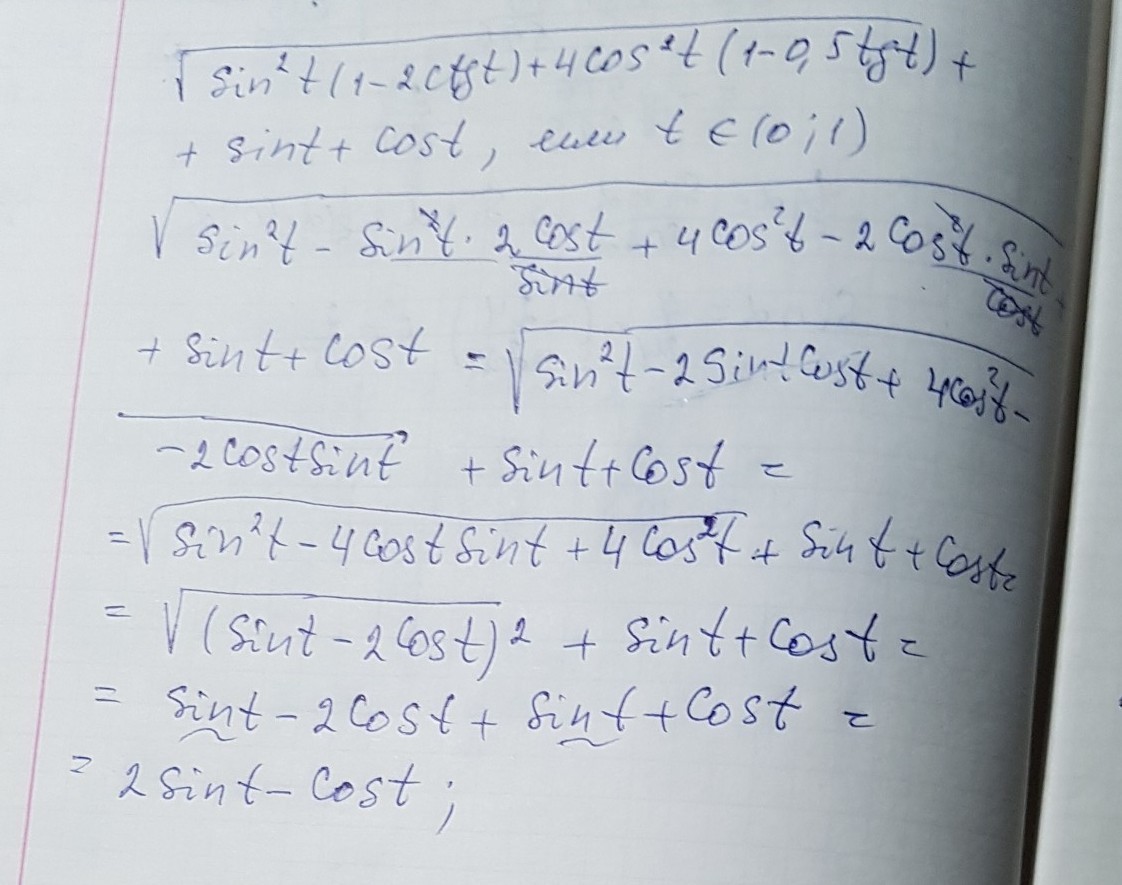 √(sin²t(1-2ctgt)+4cos²t(1-0,5tgt)) +
+ sint + cost, если t ∈ (0;1)
√(sin²t - sin²t · 2 cost/sint + 4cos²t - 2cos²t · sint/cost)
+ sint + cost = √(sin²t - 2sintcost + 4cos²t -
- 2costsint) + sint + cost =
= √(sin²t - 4costsint + 4cos²t) + sint + cost =
= √(sint - 2cost)² + sint + cost =
= sint - 2cost + sint + cost =
= 2sint - cost;